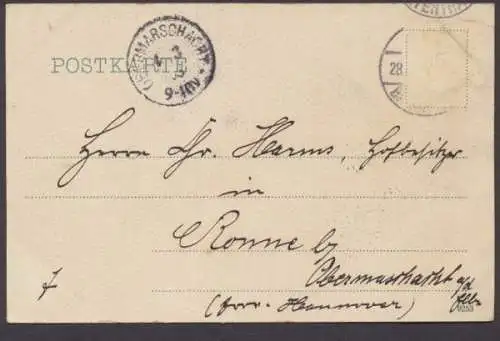 POSTKARTE
OBERMARSCHACHT
9-10V
28
Herrn Chr. Harms, Hofbesitzer
in
Rönne by
Obermarschacht a/d
Elbe
(Prov. Hannover)